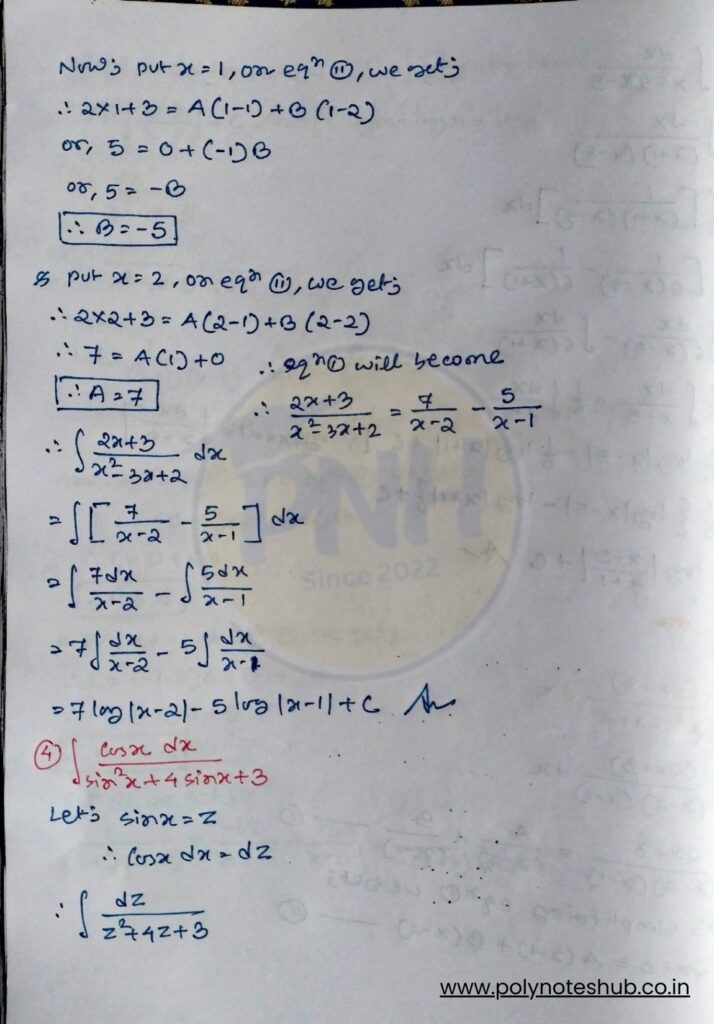 Now; put x = 1, on eqⁿ ⑪, we get;
∴ 2×1+3 = A(1-1) + B(1-2)
or, 5 = 0+(-1)B
or, 5 = -B
∴ B = -5
& put x = 2, on eqⁿ ⑪, we get;
∴ 2×2+3 = A(2-1)+B(2-2)
∴ 7 = A(1)+0 ∴ eqⁿ① will become
∴ A = 7 ∴ (2x+3)/(x²-3x+2) = 7/(x-2) - 5/(x-1)
∴ ∫ (2x+3)/(x²-3x+2) dx
= ∫[7/(x-2) - 5/(x-1)] dx
= ∫ 7dx/(x-2) - ∫ 5dx/(x-1)
= 7∫ dx/(x-2) - 5∫ dx/(x-1)
= 7 log|x-2| - 5 log|x-1| + C Ans.
④ ∫ cosx dx/(sin²x+4 sinx+3)
Let; sinx = z
∴ cosx dx = dz
∴ ∫ dz/(z²+4z+3)
PNH
Since 2022
www.polynoteshub.co.in